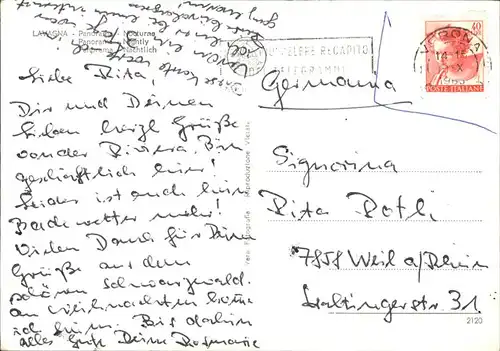 LAVAGNA - Panorama Notturno
Panorama Nightly
Panorama Nächtlich
Liebe Rita,
Dir und Deinen
Lieben herzl Grüße
von der Riviera. Bin
geschäftlich hier!
Leider ist auch kein
Badewetter mehr!
Vielen Dank für Deine
Grüße aus dem
schönen Schwarzwald.
an Weihnachten
ich heim. Bis dahin
alles Gute Deine Rosmarie
RECAPITO
TELEGRAMMI
VERONA
40
POSTE ITALIANE
Germania
Signorina
Rita Rotli
7858 Weil a/Rhein
Haltingerstr. 31
Vera Fotografia - Riproduzione Vietata
2120